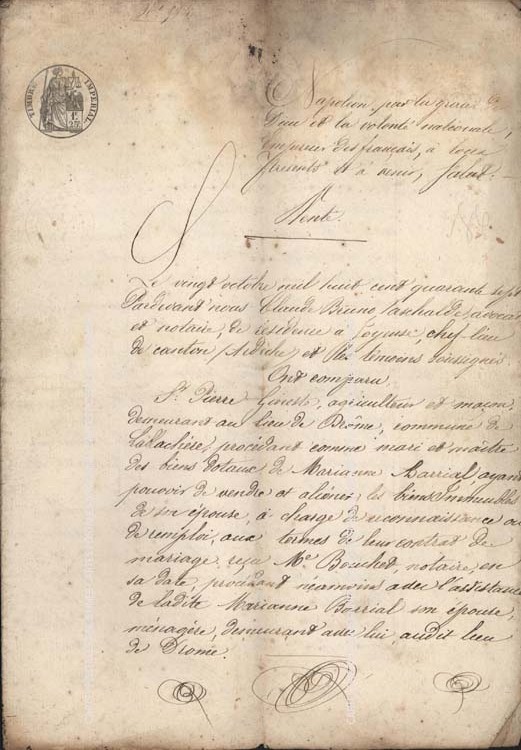 TIMBRE IMPERIAL
1F
25c
Napoléon, par la grâce de
Dieu et la volonté nationale,
empereur des français, à tous
présents et à venir, Salut.
Vente.
Le vingt octobre mil huit cent quarante sept
Pardevant nous Claude Bruno Paschalde, avocat
et notaire, de résidence à Joyeuse, chef-lieu
de canton, Ardèche, et les témoins soussignés
Ont comparu
Sr. Pierre Gineste, agriculteur et maçon,
demeurant au lieu de Drôme, commune de
Lablachère, procédant comme mari et maître
des biens dotaux de Marianne Barrial, ayant
pouvoir de vendre et aliéner les biens Immeubles
de son épouse, à charge de reconnaissance ou
de remploi, aux termes de leur contrat de
mariage reçu Me. Bouchet, notaire, en
sa date, procédant néanmoins avec l'assistance
de ladite Marianne Barrial son épouse,
ménagère, demeurant avec lui, audit lieu
de Drome.